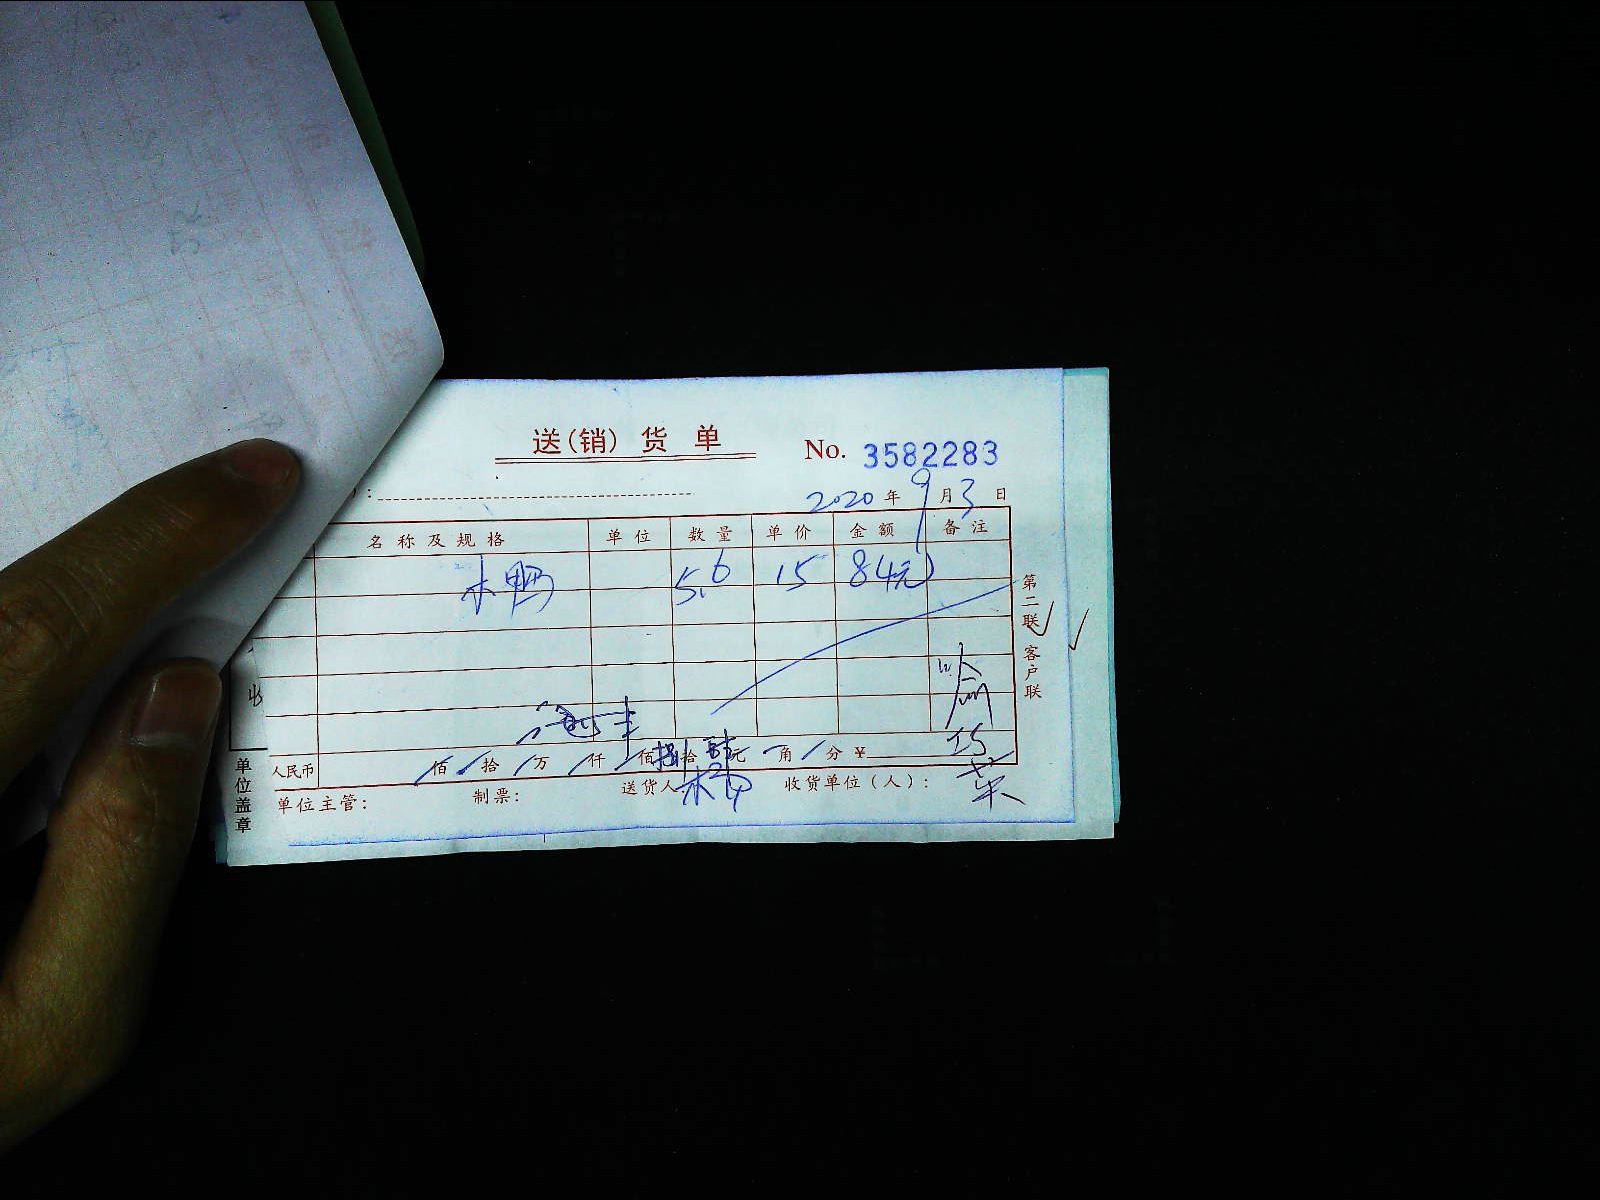 送(销) 货 单
No. 3582283
):
2020 年 9 月 3 日
名 称 及 规 格 单 位 数 量 单 价 金 额 备 注
水鸭 5.6 15 84元
第二联 客户联
人民币 佰 拾 万 仟 佰 捌拾 肆元 角 分 ¥
单位主管: 制票: 送货人: 收货单位(人):
单位盖章